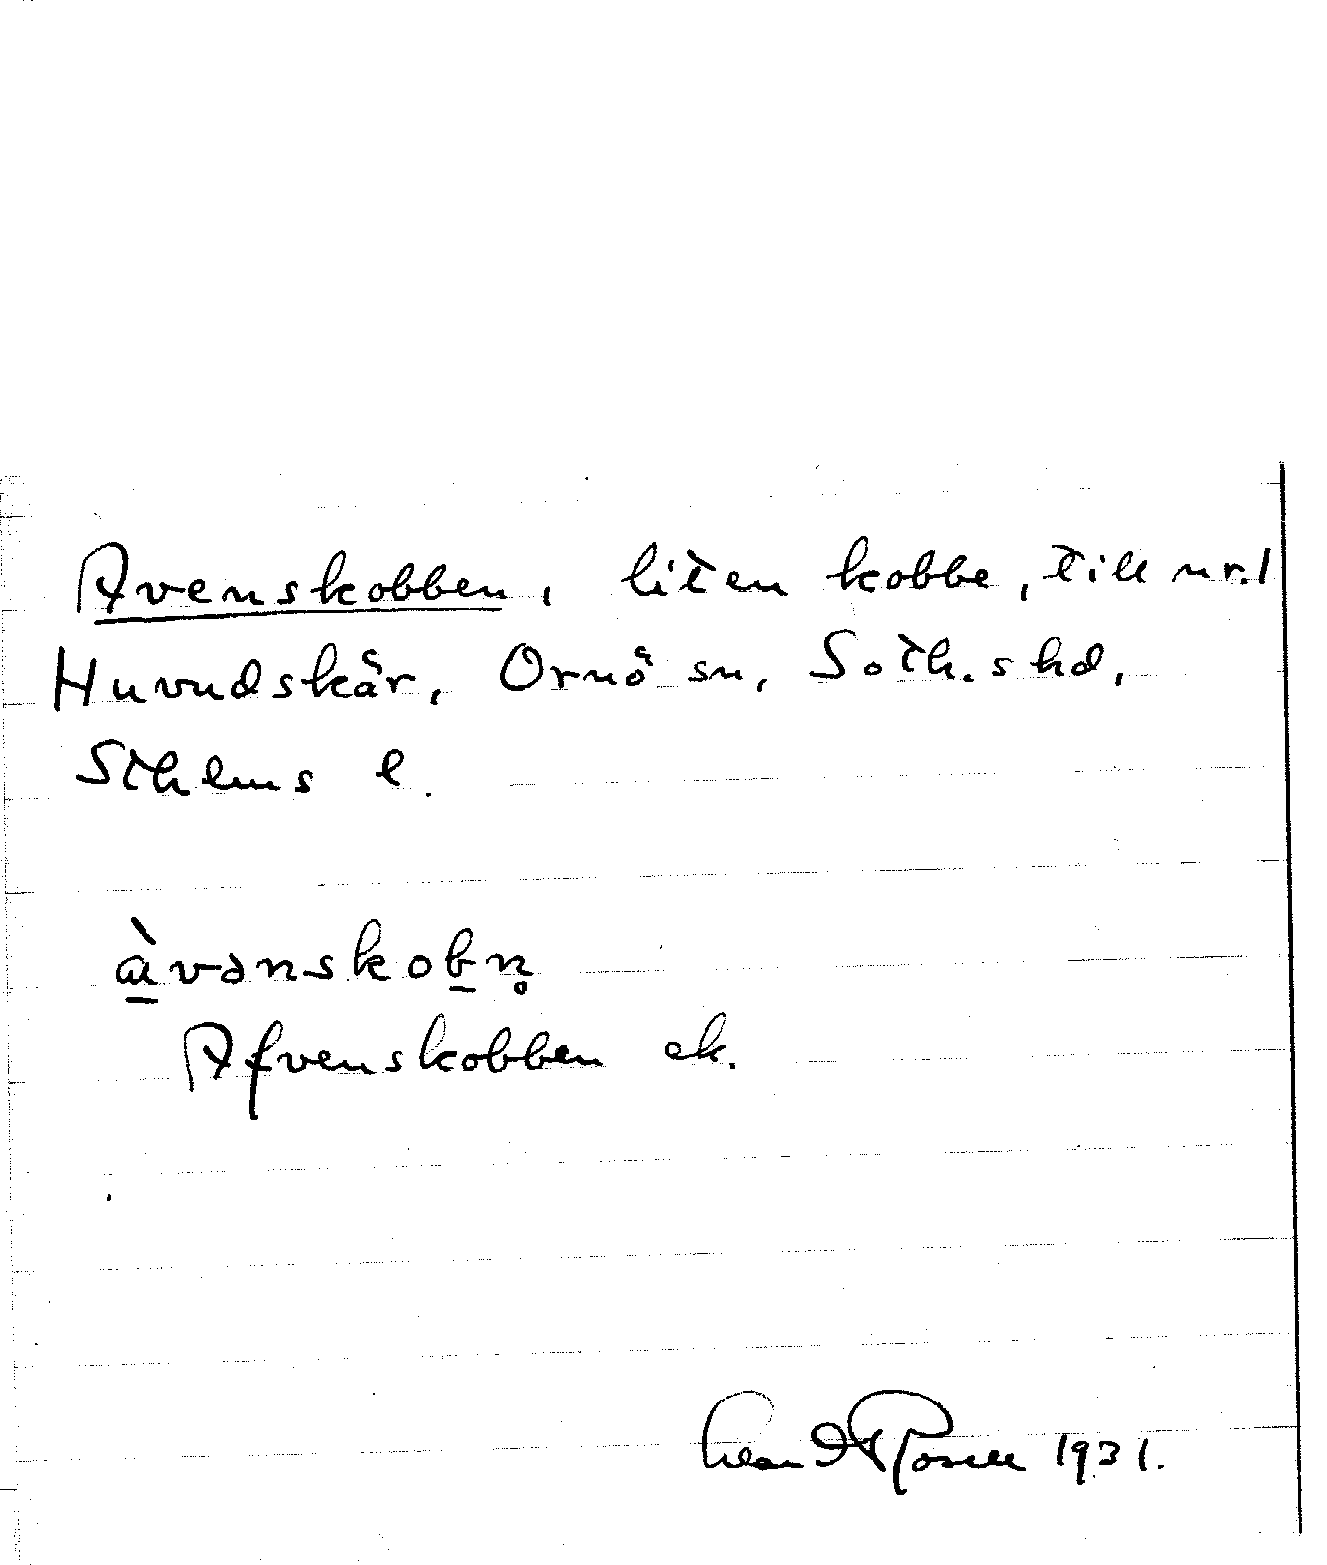 Avenskobben, liten kobbe, till nr. 1
Huvudskär, Ornö sn, Soth. shd,
Sthlms l.
à̱vənskoḇn̥
Afvenskobben ek.
Rosell 1931.